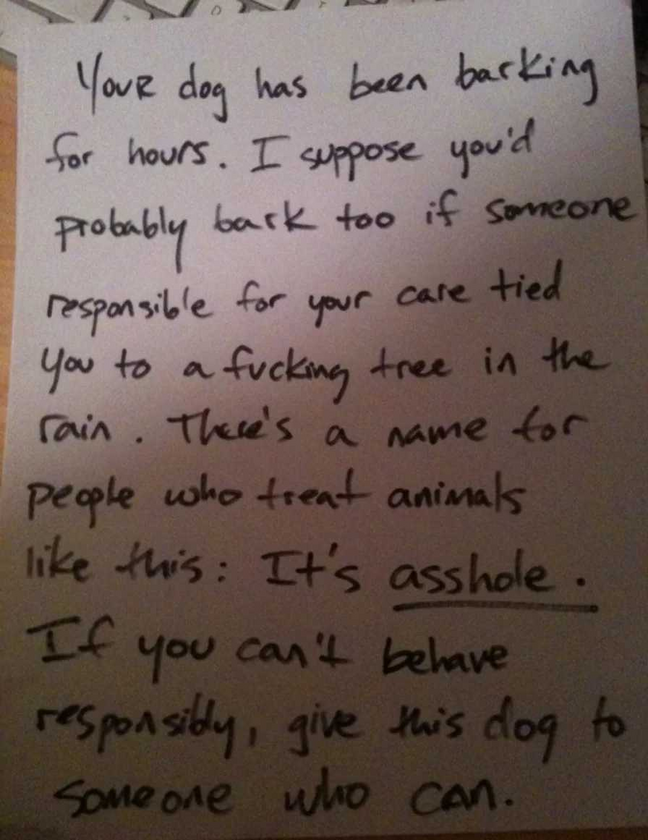 Your dog has been barking
for hours. I suppose you'd
probably bark too if someone
responsible for your care tied
you to a fucking tree in the
rain. There's a name for
people who treat animals
like this: It's asshole.
If you can't behave
responsibly, give this dog to
someone who can.